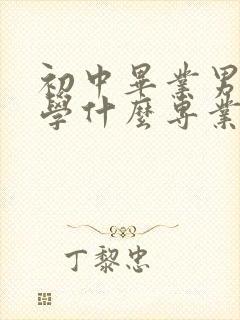 初中畢業男
學什麼專業
丁黎忠